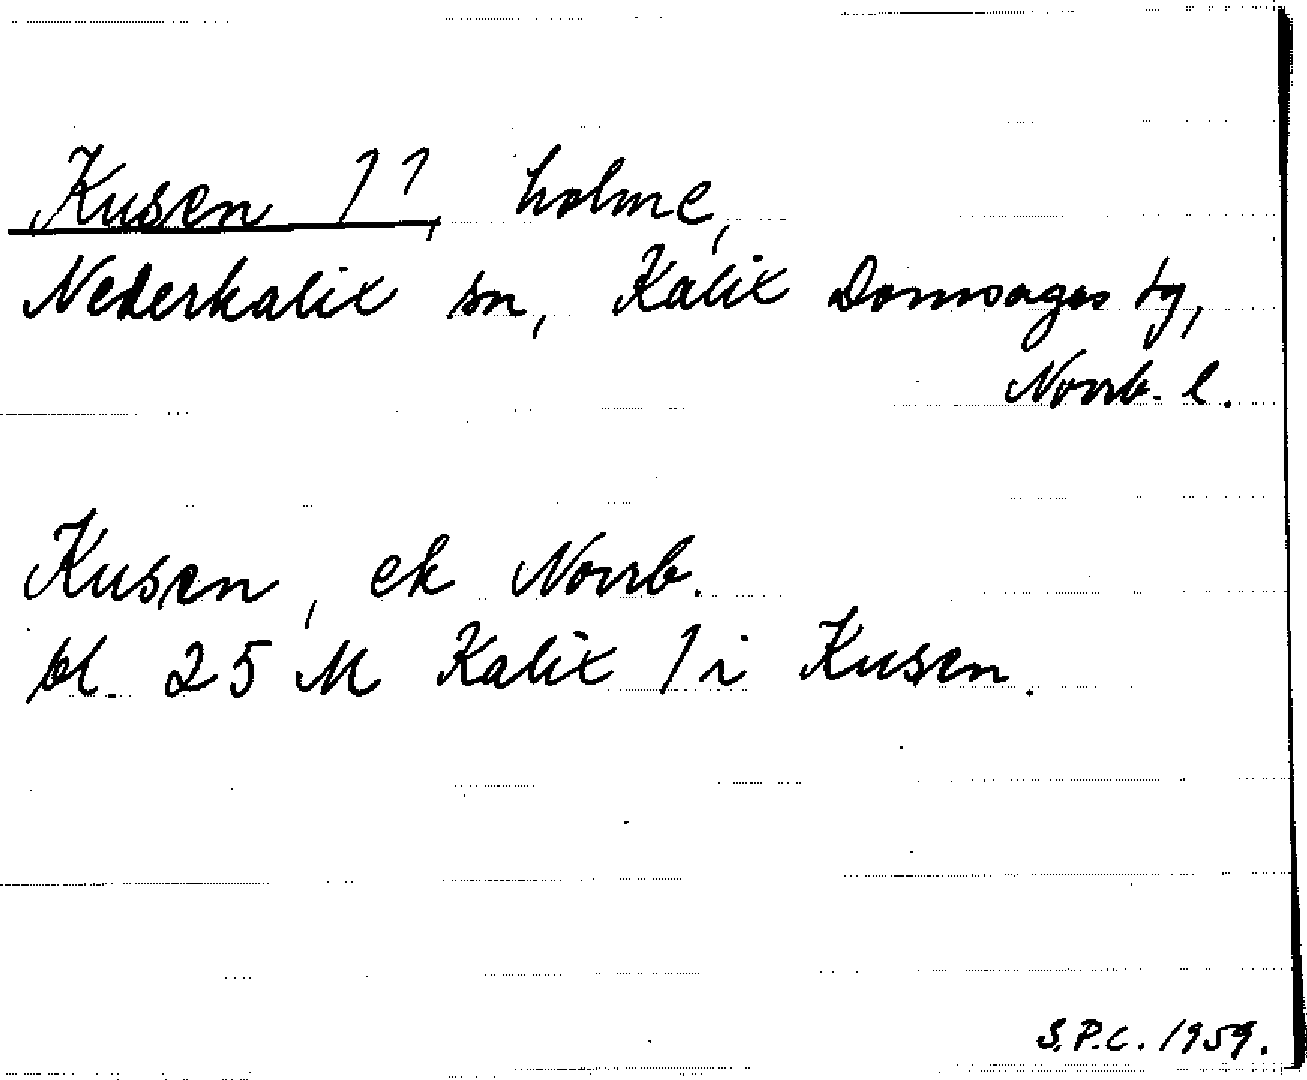 Kusen ??, holme,
Nederkalix sn, Kalix Domsagas tg,
Norrb. l.
Kusen, ek Norrb.
bl. 25 M Kalix / i Kusen.
S.P.C. 1959.